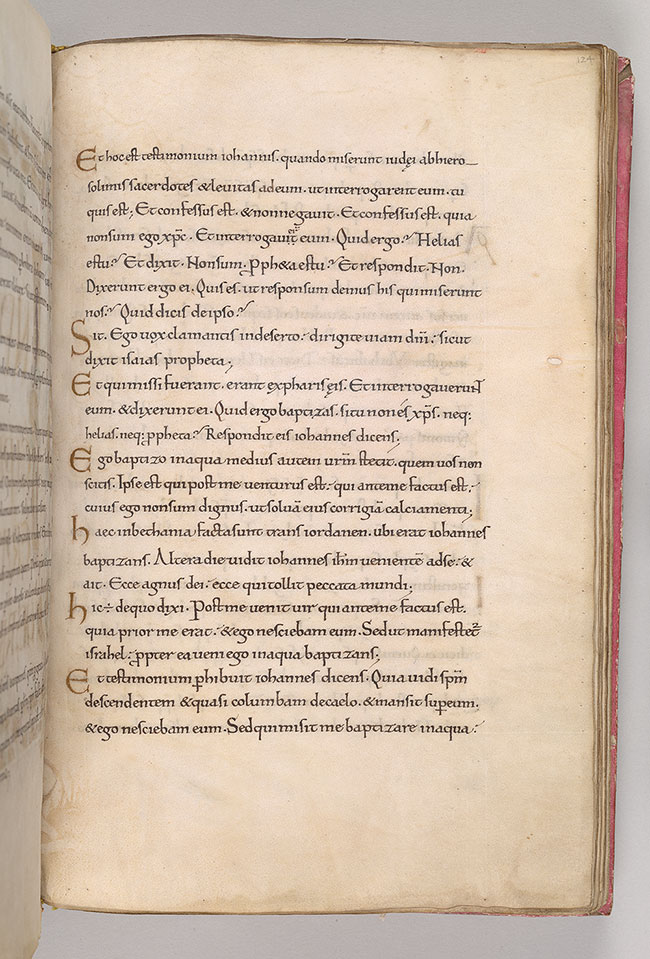 124
Et hoc est testimonium iohannis. quando miserunt iudęi abhiero_
solimis sacerdotes & levitas adeum. ut interrogarent eum. tu
quis est; Et confessus est. & non negavit. Et confessus est. quia
non sum ego xp̄c. Et interrogavit eum. Quid ergo? Helias
es tu? Et dixit. Non sum. ꝓph&a es tu? Et respondit. Non.
Dixerunt ergo ei. Quis es. ut responsum demus his qui miserunt
nos? Quid dicis de ipso?
Sit. Ego vox clamantis in deserto: dirigite viam dn̄i: sicut
dixit isaias propheta;
Et qui missi fuerant. erant ex pharisęis. Et interrogaverunt
eum. & dixerunt ei. Quid ergo baptizas. si tu non és xp̄s. neq;
helias. neq; ꝓpheta? Respondit eis iohannes dicens;
Ego baptizo in aqua medius autem ur̄m stetit. quem vos non
scitis. Ipse est qui post me venturus est: qui ante me factus est;
cuius ego non sum dignus. ut solvā eius corrigiā calciamenti;
haec in bethania facta sunt trans iordanen. ubi erat iohannes
baptizans. Altera die vidit iohannes ih̄m venientē ad se: &
ait. Ecce agnus dei: ecce qui tollit peccata mundi;
hic ÷ de quo dixi. Post me venit vir qui ante me factus est.
quia prior me erat: & ego nesciebam eum. Sed ut manifestet᷑
israhel: ꝓpter ea veni ego in aqua baptizans;
Et testimonium ꝑhibuit iohannes dicens. Quia vidi sp̄m
descendentem & quasi columbam de caelo. & mansit suꝑ eum.
& ego nesciebam eum. Sed qui misit me baptizare in aqua: